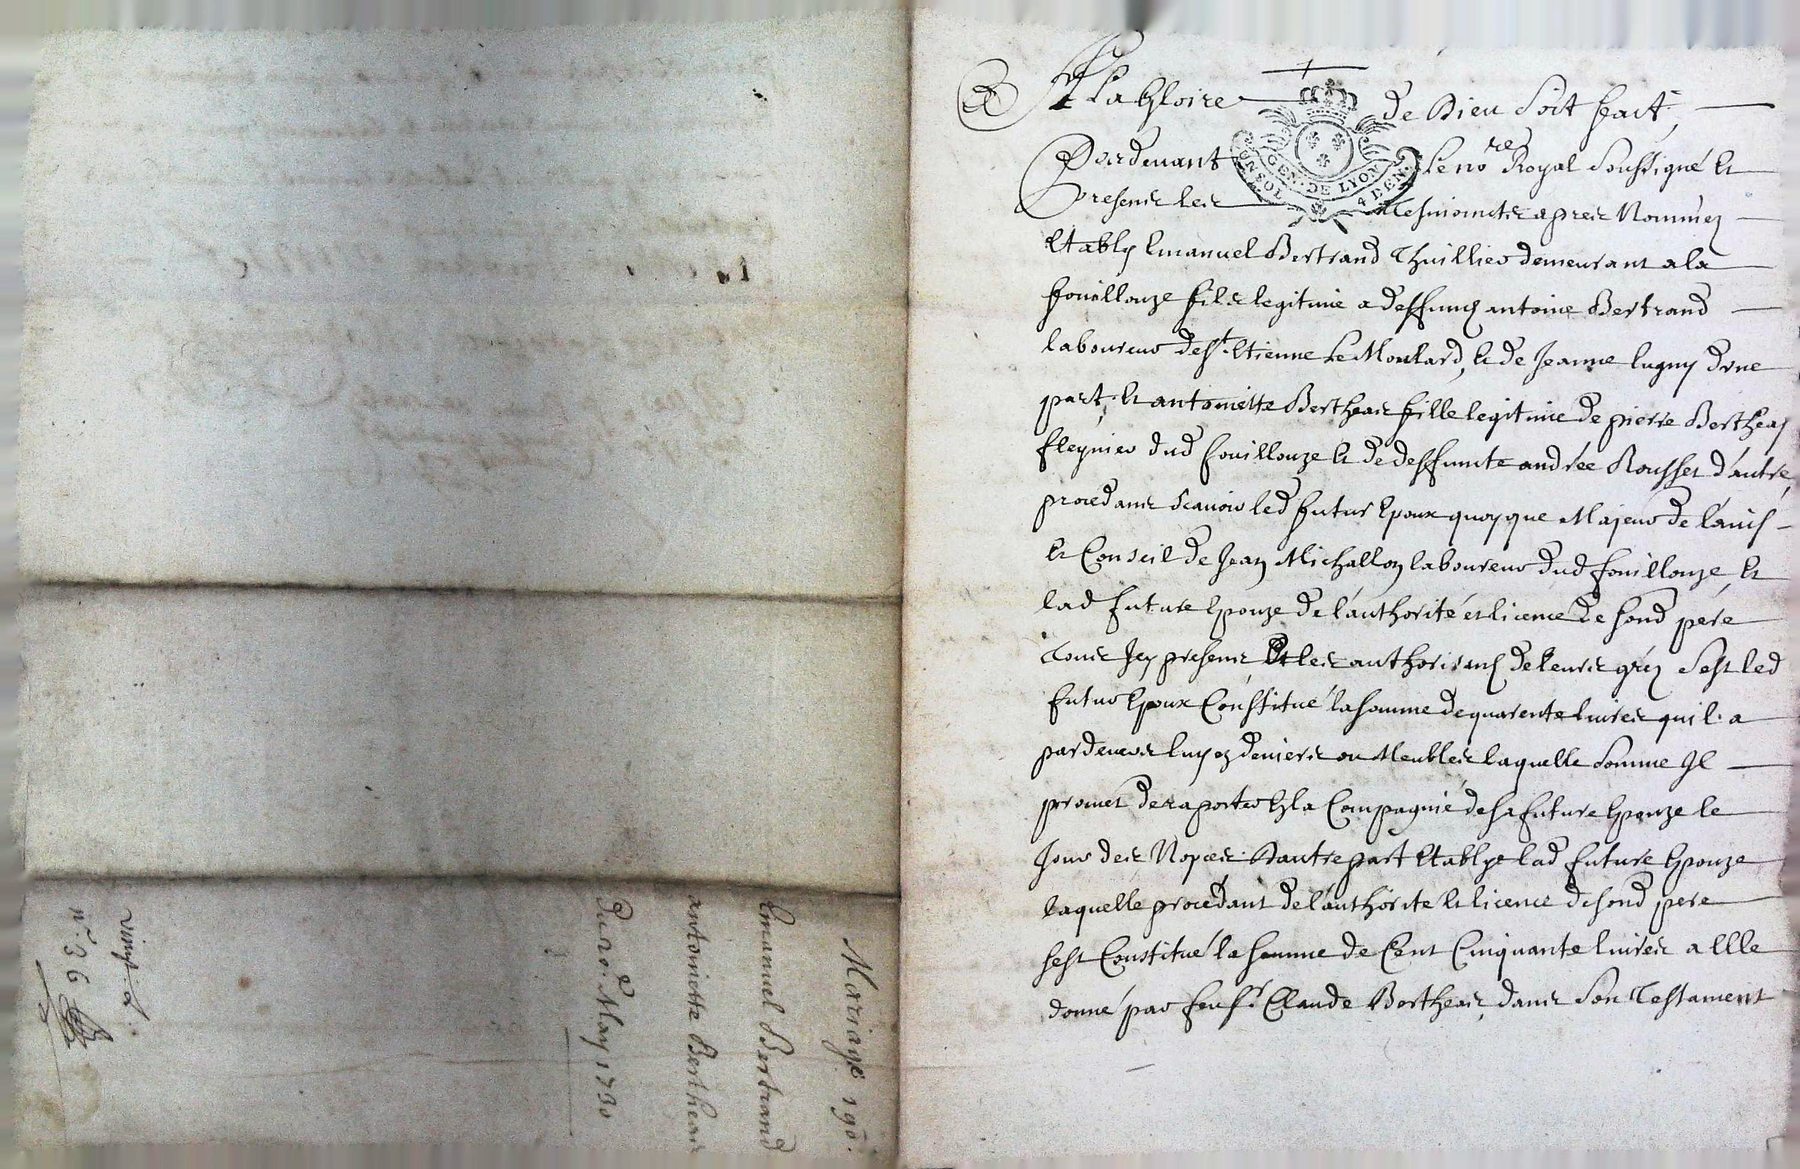 A La Gloire de Dieu Soit fait,
Pardevant Le no.re Royal Soussigné Et
GEN. DE LYON
4 DEN.
Presens les tesmoints apres Nommez
Etably Emanuel Bertrand Thuillier demeurant a la
fouillouze fils legitime a deffunct antoine Bertrand
laboureur de St. Etienne Le Moulard, Et de Jeanne lugny d'vne
part, Et antoinette Bertheas fille legitime de pierre Bertheas
dud fouillouze Et de deffuncte andrée Rousset d'autre,
procedans scavoir led futur Epoux quoyque Majeur de l'auis
Et Conseil de Jean Michallon laboureur dud fouillouze, Et
lad future Epouze de l'authorité et licence de sond père
tous Icy presens Et les authorisans de leurs grez s'est led
futur Epoux Constitué la somme de quarente liures qu'il a
pardevers luy en deniers ou Meubles laquelle somme Il
promet de raporter En la Compagnie de sa future Epouze le
Jour des Nopces. D'autre part Etablye lad future Epouze
laquelle procédant de l'authorité Et licence de sond pere
s'est Constitué la somme de Cent Cinquante liures a Elle
donné par feu Sr. Claude Bertheas, dans son Testament
Mariage 190.
Emanuel Bertrand
antoinette Bertheas
Du 20. May 1730
vingt. d.
n.° 36